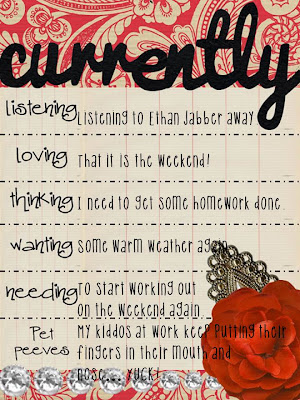 currently
listening Listening to Ethan Jabber away
loving That it is the weekend!
thinking I need to get some homework done.
wanting Some warm weather again
needing To start working out
on the weekend again.
Pet My kiddos at work keep putting their
peeves fingers in their mouth and
nose.... YUCK!